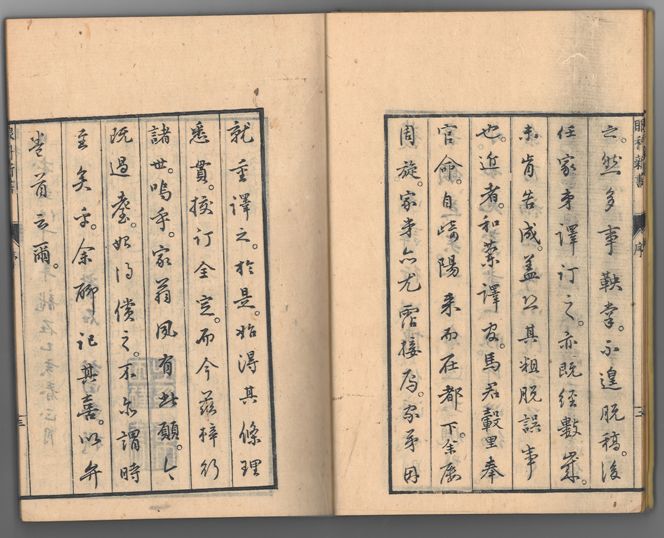 眼科新書
序
三
之。然多事鞅掌。不遑脱稿。後
任家弟譯訂之。亦既經數歳。
未肯告成。盖以其粗脱誤事
也。近者。和蘭譯官。馬君轂里奉
官命。自崎陽来而在都下。余屡
周旋。家弟亦尤霑接焉。家弟因
就重譯之。於是。始得其條理
悉貫。挍訂全完。而今茲梓行
諸世。嗚乎。家翁夙有此願。今
既過耋。始得償之。不亦謂時
至矣乎。余聊記其喜。以弁
巻首云爾。
序
三